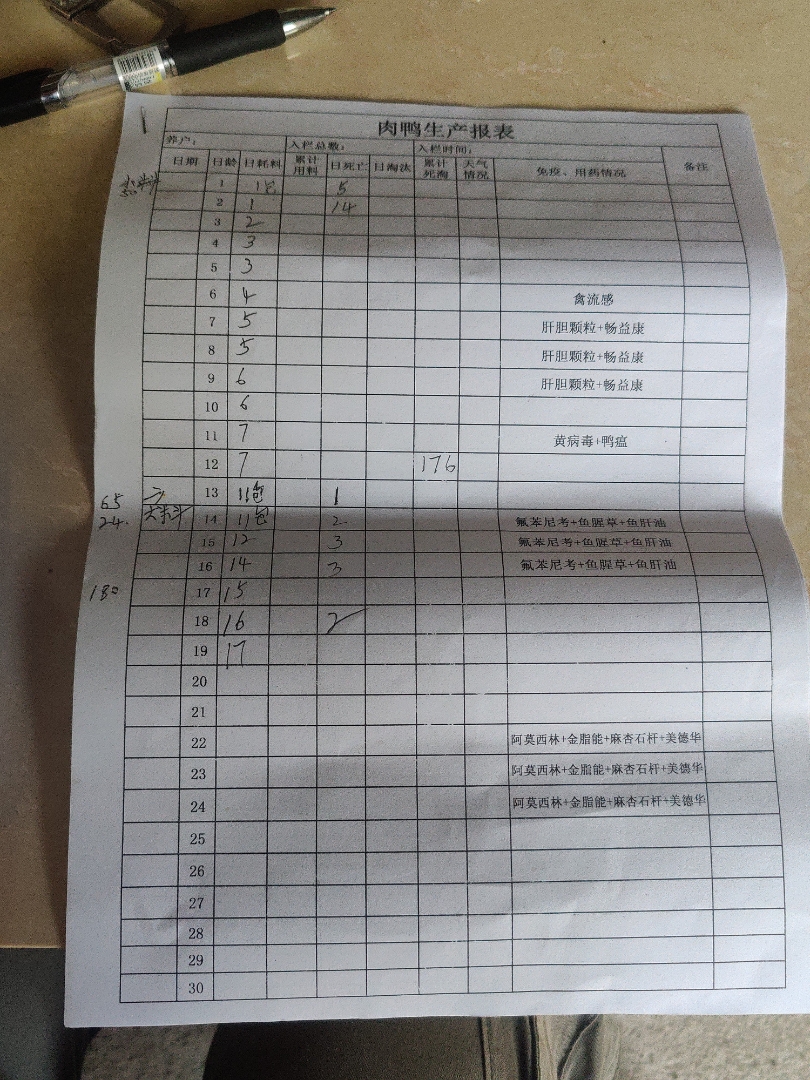 肉鸭生产报表
养户： 入栏总数： 入栏时间：
日期 日龄 日耗料 累计用料 日死亡 日淘汰 累计死淘 天气情况 免疫、用药情况 备注
1 1包 5
2 1 14
3 2
4 3
5 3
6 4 禽流感
7 5 肝胆颗粒+畅益康
8 5 肝胆颗粒+畅益康
9 6 肝胆颗粒+畅益康
10 6
11 7 黄病毒+鸭瘟
12 7 176
65 13 11包 1
24. 大料 14 11包 2 氟苯尼考+鱼腥草+鱼肝油
15 12 3 氟苯尼考+鱼腥草+鱼肝油
16 14 3 氟苯尼考+鱼腥草+鱼肝油
180 17 15
18 16 2
19 17
20
21
22 阿莫西林+金脂能+麻杏石杆+美德华
23 阿莫西林+金脂能+麻杏石杆+美德华
24 阿莫西林+金脂能+麻杏石杆+美德华
25
26
27
28
29
30